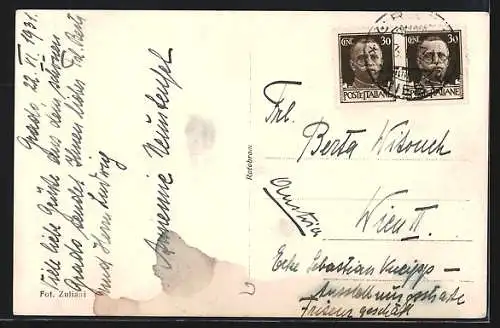 Grado 22. VI. 1931.
Viele liebe Grüße aus dem schönen
Grado sendet Ihnen liebes Frl. Berta
und Herrn Ludwig
Annemie
Fot. Zuliani
Rotobrom
CENT. 30
POSTE ITALIANE
CENT. 30
POSTE ITALIANE
Frl.
Berta
Austria
Wien II.
Ecke Sebastian Kneipp-
Ausstellungsstraße
Friseurgeschäft